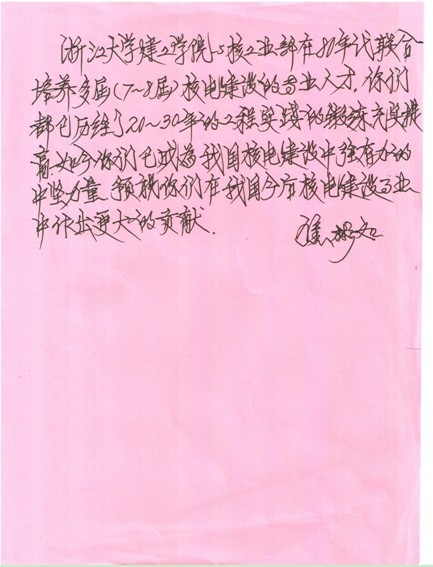 浙江大学建工学院与核工业部在80年代联合
培养多届(7~8届)核电建设的专业人才.你们
都已历经了20~30年的工程实践的锻练充实提
高.如今你们已成为我国核电建设中强有力的
中坚力量.预祝你们在我国今后核电建设事业
中作出更大的贡献.